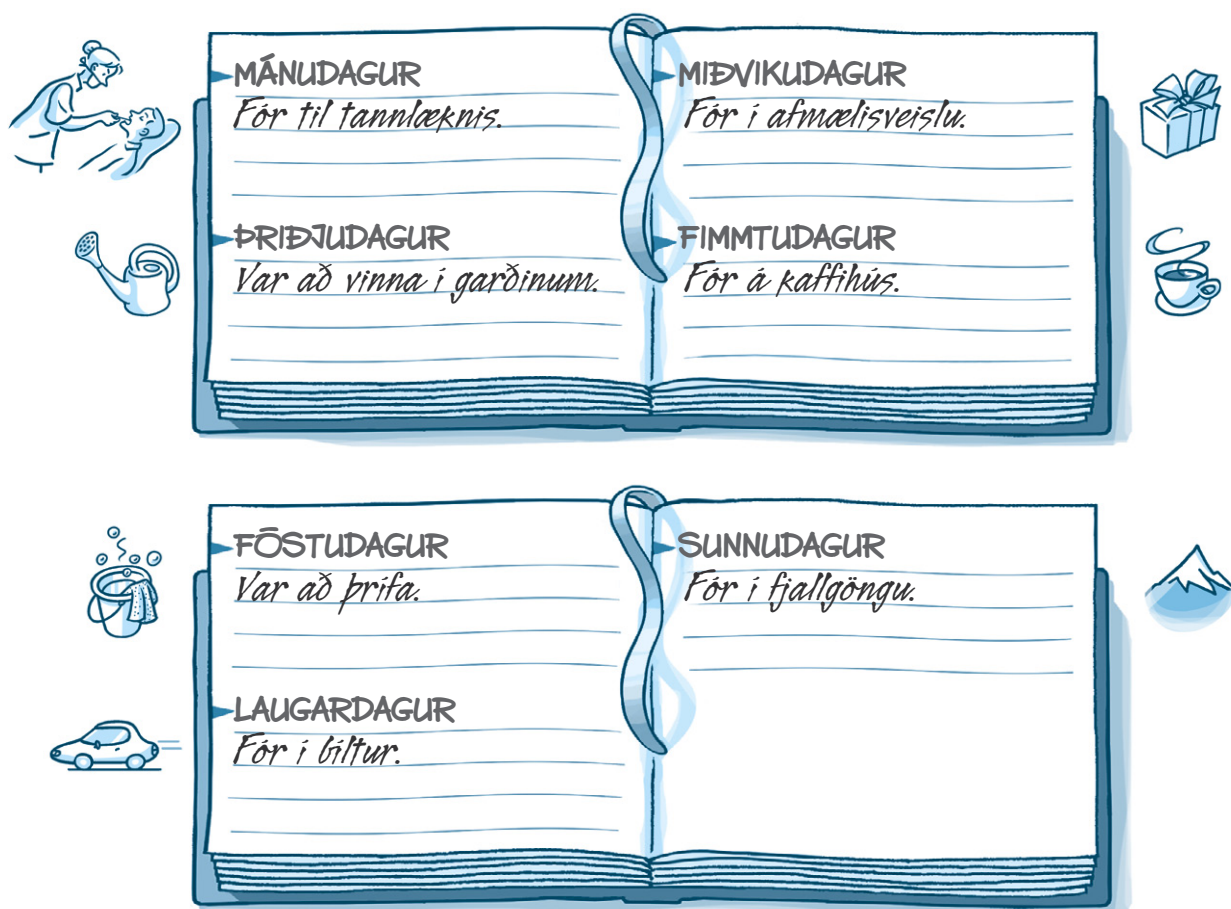 MÁNUDAGUR
Fór til tannlæknis.
ÞRIÐJUDAGUR
Var að vinna í garðinum.
MIÐVIKUDAGUR
Fór í afmælisveislu.
FIMMTUDAGUR
Fór á kaffihús.
FÖSTUDAGUR
Var að þrífa.
LAUGARDAGUR
Fór í bíltur.
SUNNUDAGUR
Fór í fjallgöngu.